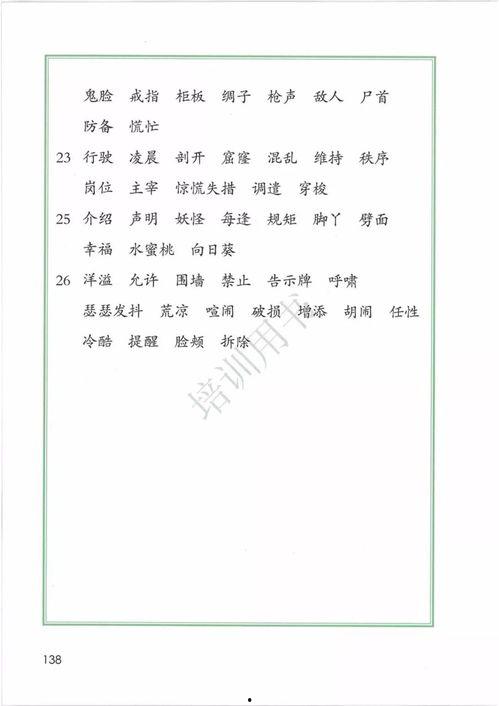 鬼脸 戒指 柜板 绸子 枪声 敌人 尸首
防备 慌忙
23 行驶 凌晨 剖开 窟窿 混乱 维持 秩序
岗位 主宰 惊慌失措 调遣 穿梭
25 介绍 声明 妖怪 每逢 规矩 脚丫 劈面
幸福 水蜜桃 向日葵
26 洋溢 允许 围墙 禁止 告示牌 呼啸
瑟瑟发抖 荒凉 喧闹 破损 增添 胡闹 任性
冷酷 提醒 脸颊 拆除
培训用书
138